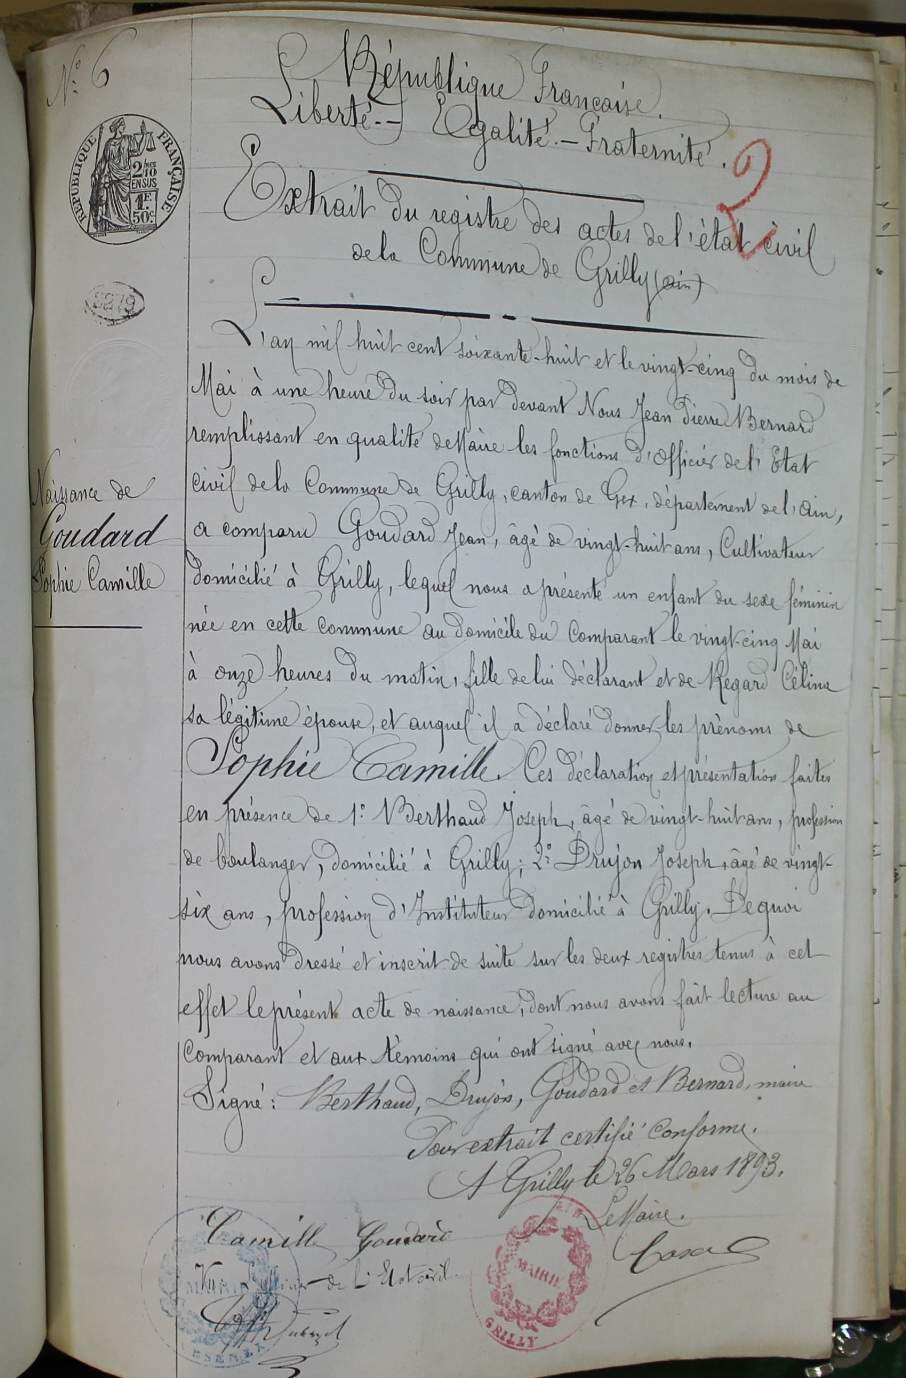 N° 6
République Française.
Liberté. - Egalité. - Fraternité.
2
RÉPUBLIQUE FRANÇAISE
2/10
EN SUS
1F
50c
Extrait du registre des actes de l'état civil
de la Commune de Grilly (ain)
L'an mil huit cent soixante-huit et le vingt-cinq du mois de
Mai à une heure du soir par devant Nous Jean Pierre Bernard
remplissant en qualité de Maire les fonctions d'officier de l'Etat
civil de la Commune de Grilly, canton de Gex, département de l'ain,
Naissance de
Goudard
Sophie Camille
a comparu Goudard Jean, âgé de vingt-huit ans, Cultivateur
domicilié à Grilly, lequel nous a présenté un enfant du sexe féminin
née en cette commune au domicile du comparant le vingt-cinq Mai
à onze heures du matin, fille de lui déclarant et de Regard Célina
sa légitime épouse, et auquel il a déclaré donner les prénoms de
Sophie Camille. Ces déclaration et présentation faites
en présence de 1° Berthaud Joseph, âgé de vingt-huit ans, profession
de boulanger, domicilié à Grilly; 2° Drujon Joseph, âgé de vingt-
six ans, profession d'Instituteur domicilié à Grilly. De quoi
nous avons dressé et inscrit de suite sur les deux registres tenus à cet
effet le présent acte de naissance, dont nous avons fait lecture au
Comparant et aux témoins qui ont signé avec nous.
Signé: Berthaud, Drujon, Goudard et Bernard, maire
Pour extrait certifié conforme.
A Grilly le 26 Mars 1893.
Le Maire.
Camille Goudard
de l'Etat civil
MAIRIE
GRILLY